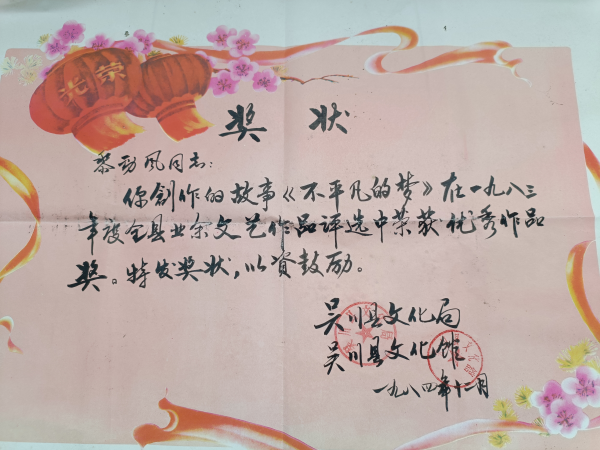 光荣
奖状
黎劲风同志：
你创作的故事《不平凡的梦》在一九八三
年度全县业余文艺作品评选中荣获优秀作品
奖。特发奖状，以资鼓励。
吴川县文化局
吴川县文化馆
一九八四年十二月